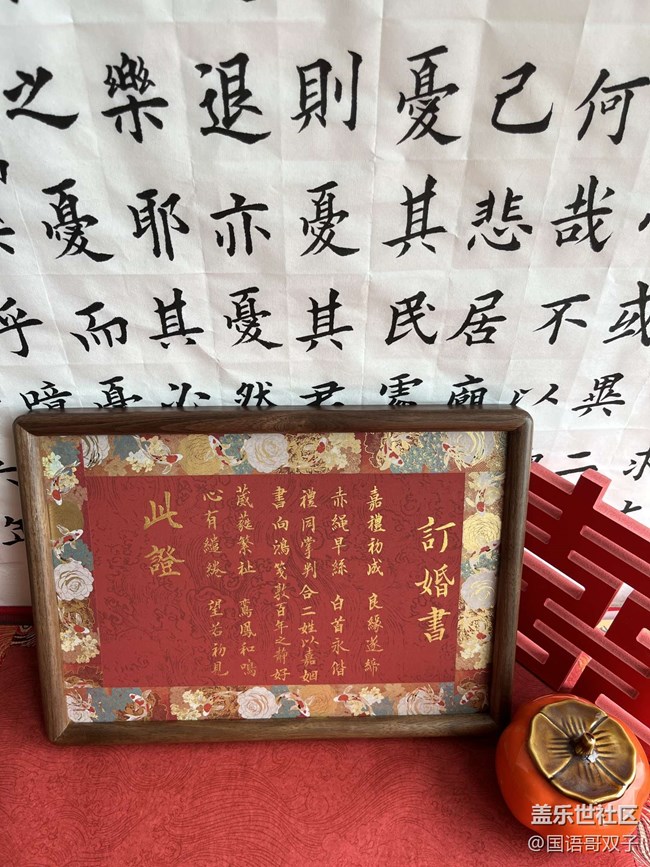 或異二
何哉不以
己悲居廟
憂其民處
則憂其君
退亦憂然
樂耶其必
之憂而憂
乎噫
訂婚書
嘉禮初成 良緣遂締
赤繩早絲 白首永偕
禮同掌判合二姓以嘉姻
書向鴻箋敦百年之靜好
葳蕤繁祉 鸞鳳和鳴
心有繾綣 望若初見
此證
盖乐世社区
@国语哥双子